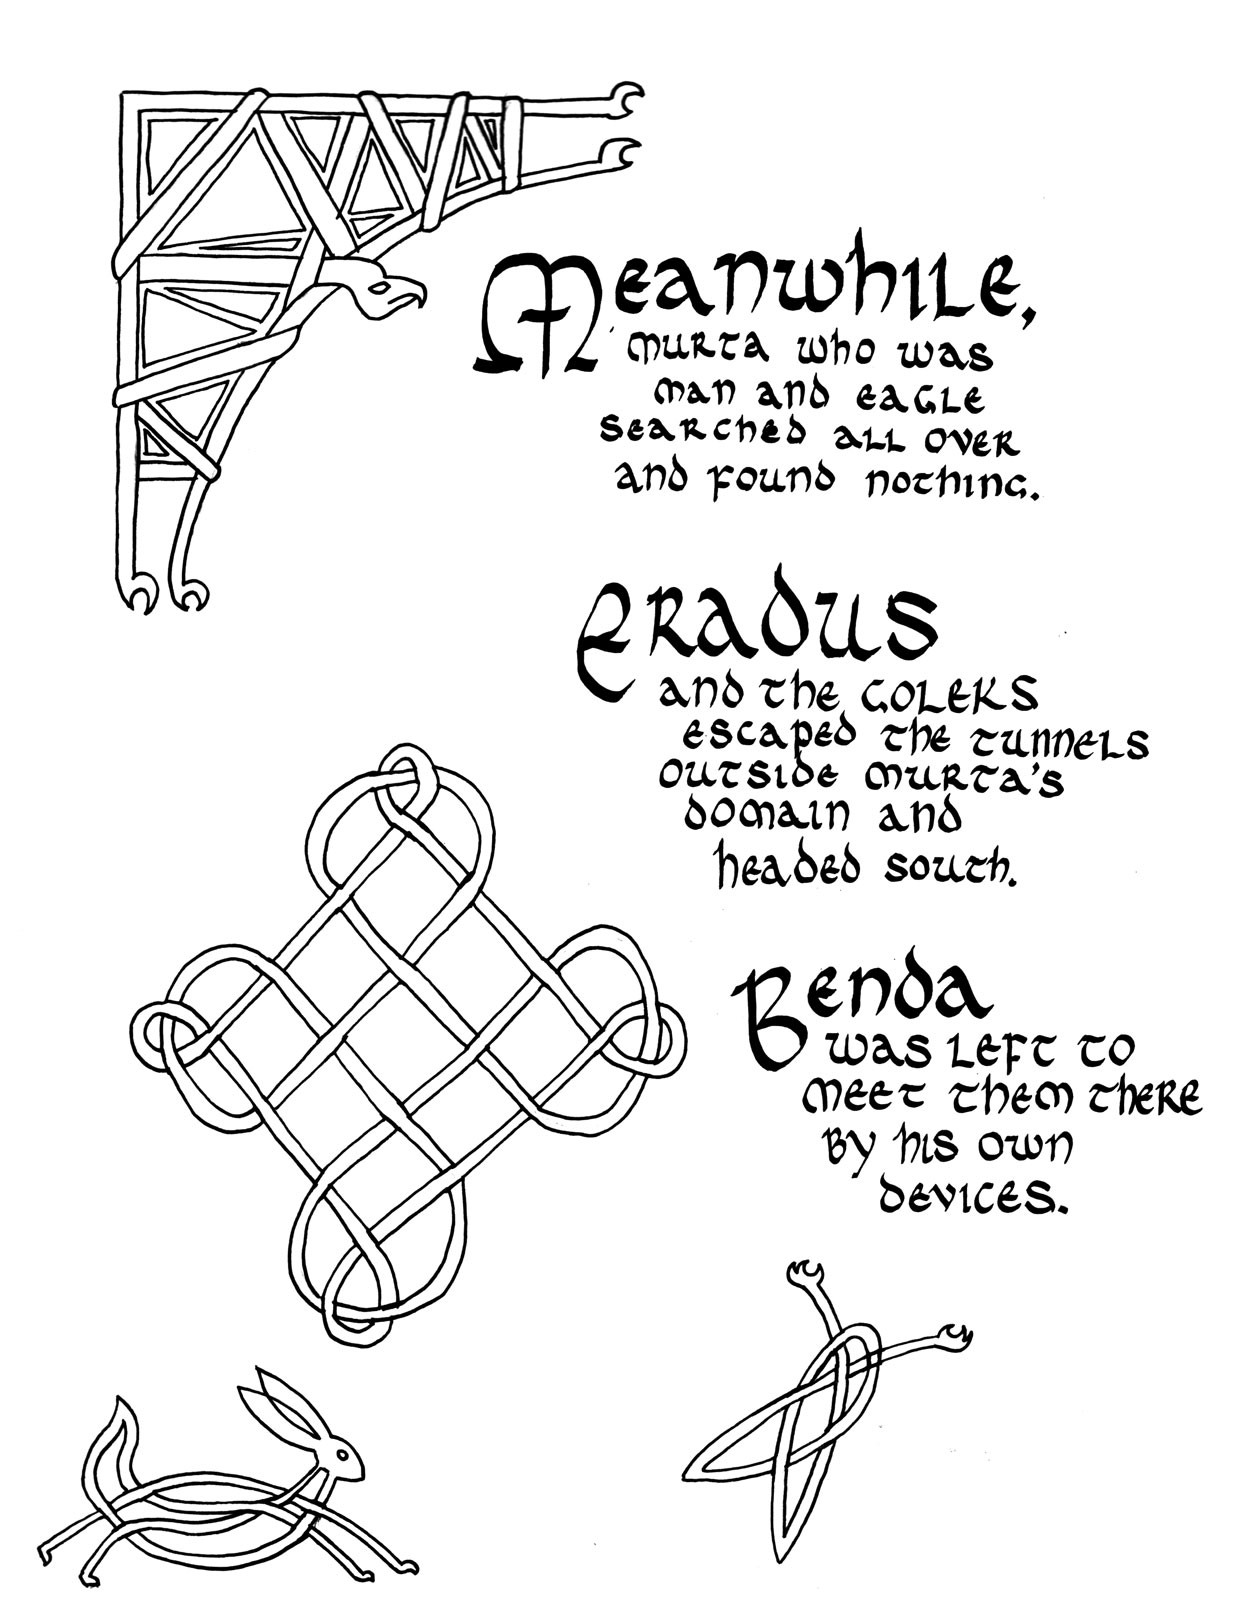 Meanwhile,
Murta who was
man and eagle
searched all over
and found nothing.
Eradus
and the Goleks
escaped the tunnels
outside Murta's
domain and
headed south.
Benda
was left to
meet them there
by his own
devices.